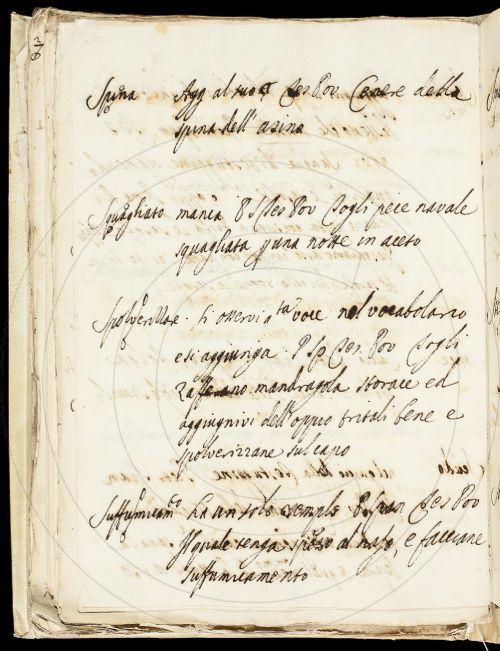 Spina. Agg al suo Tes Pov Cenere della
spina dell'asino
Squagliato manca P S Tes Pov Togli pece navale
squagliata p una notte in aceto
Spolverizzare. si osservi q.ta voce nel vocabolario
e si aggiunga. P Sp Tes. Pov Togli
Zafferano mandragola storace ed
aggiugnivi dell'oppio tritali bene e
spolverizzane sul capo
Suffumicam.to ha un solo esemplo Tes Pov
Il quale tenga spesso al naso, e facciane
suffumicamento